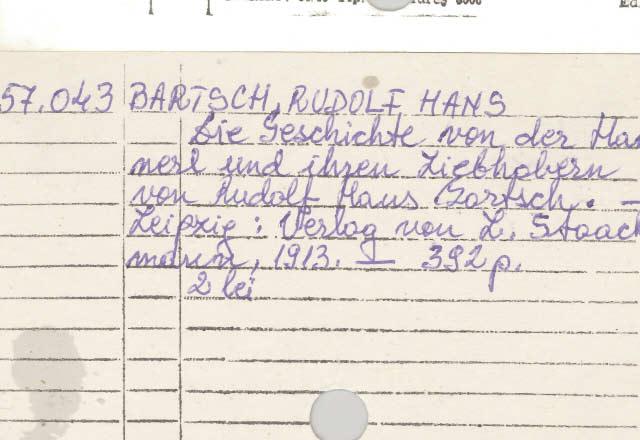 57.043 BARTSCH, RUDOLF HANS
Die Geschichte von der Han
nerl und ihren Liebhabern
von Rudolf Hans Bartsch. —
Leipzig : Verlag von L. Staack
mann, 1913. — 392 p.
2 lei